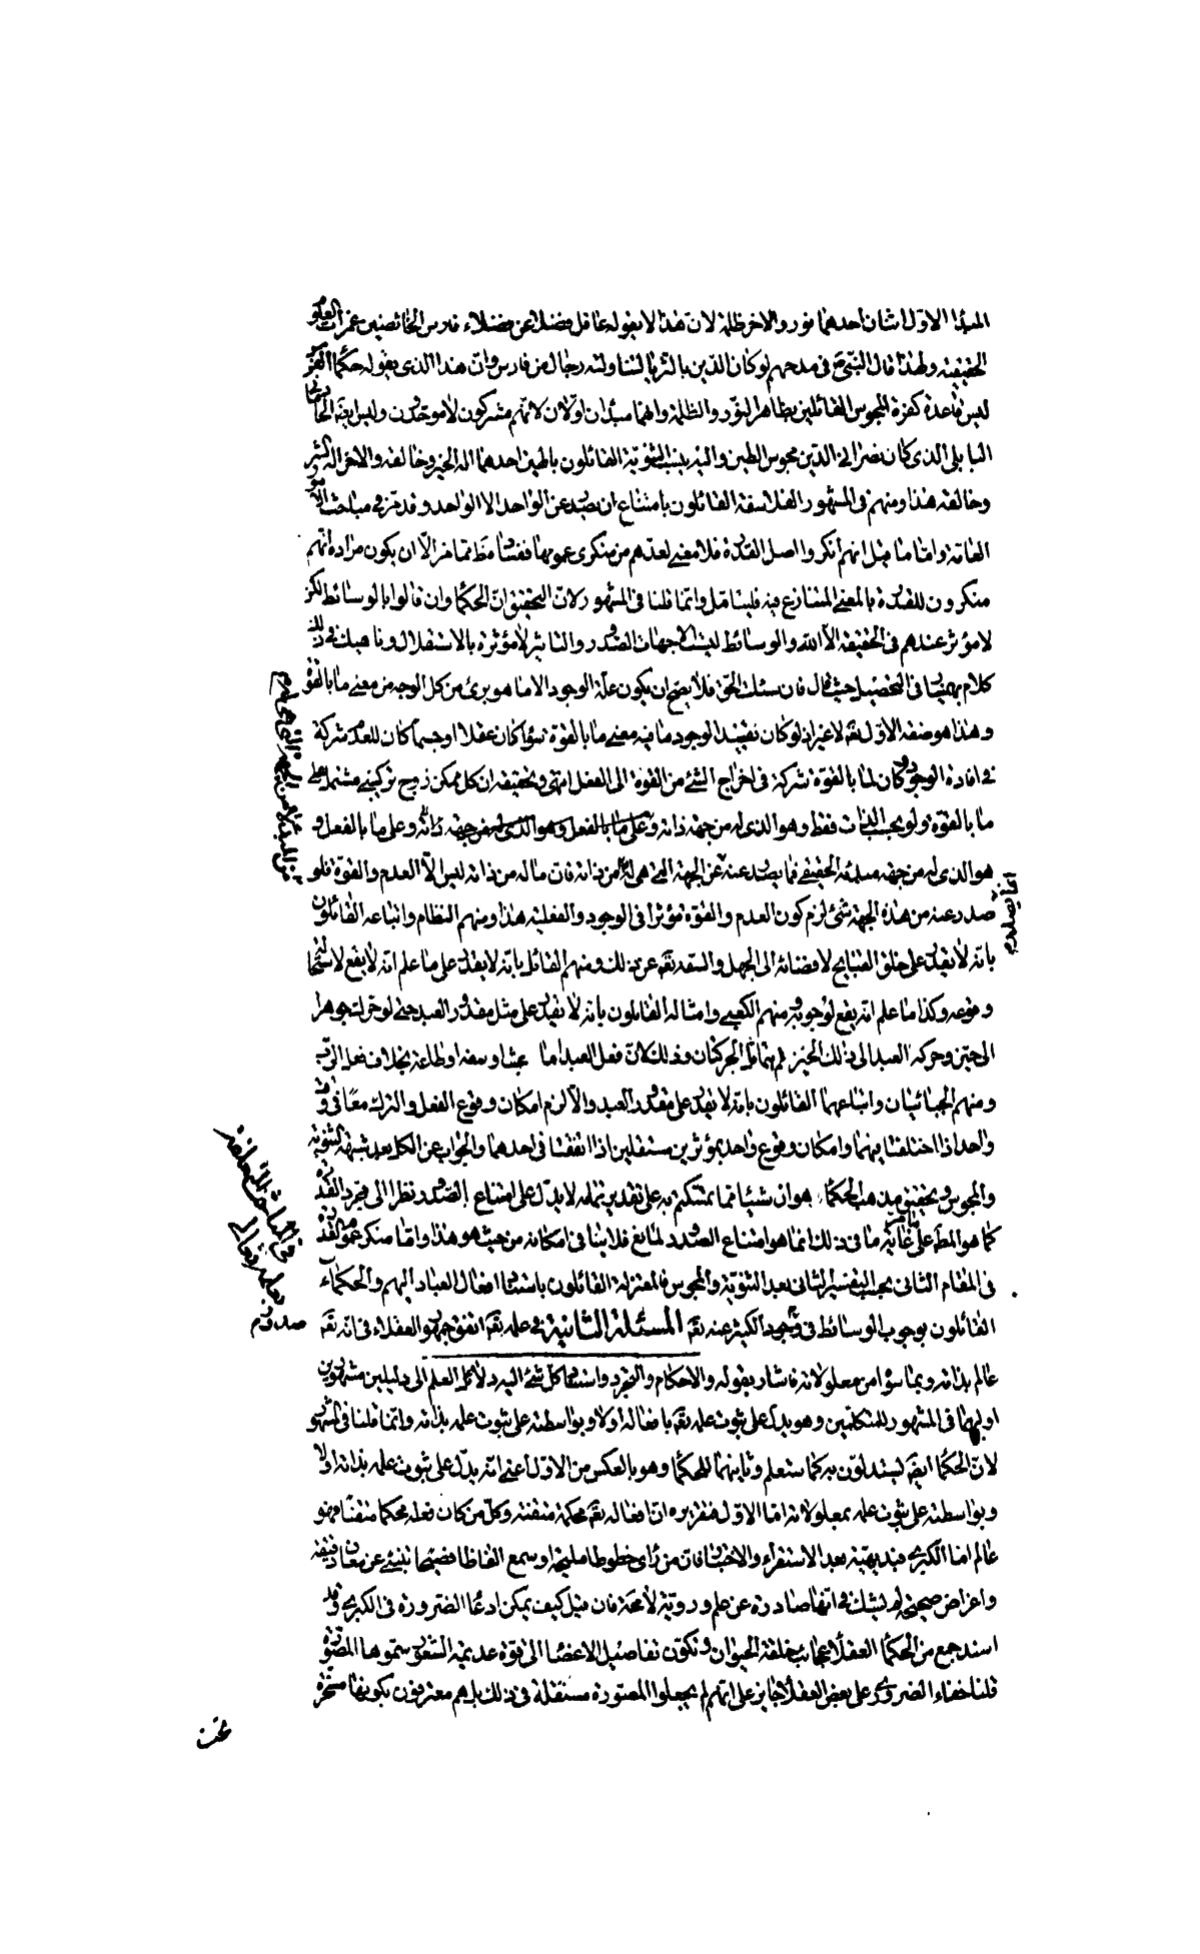 المبدأ الاول اثنان احدهما نور والاخر ظلمة لان هذا لا يقوله عاقل فضلا عن فضلاء فارس الخائضين غمرات العلوم
الحقيقية ولهذا قال النبى ص فى مدحهم لو كان الدين بالثريا لتناولته رجال من فارس وان هذا الذى يقوله حكماء الفرس
ليس قاعدة كفرة المجوس القائلين بظاهر النور والظلمة وانهما مبدءان اولان لانهم مشركون لا موحدون وليس ايضا الحاد مانى
البابلى الذى كان نصرانى الدين مجوس الطين واليه ينسب الثنوية القائلون بالهين احدهما اله الخير وخالقه والاخر اله الشر
وخالقه هذا ومنهم فى المشهور الفلاسفة القائلون بامتناع ان يصدر عن الواحد الا الواحد وقد مر فى مباحث الامور
العامة واما ما قيل انهم انكروا اصل القدرة فلا معنى لعدهم من منكرى عمومها ففساده يظهر مما مر الا ان يكون مراده انهم
منكرون للقدرة بالمعنى المتنازع فيه فليتامل وانما قلنا فى المشهور لان التحقيق ان الحكماء وان قالوا بالوسائط لكن
لا مؤثر عندهم فى الحقيقة الا الله والوسائط ليست الا جهات الصدور والتاثير لا مؤثرة بالاستقلال وناهيك فى ذلك
كلام بهمنيار فى التحصيل حيث قال فان سئلت الحق فلا يصح ان يكون علة الوجود الا ما هو برئ من كل الوجه من معنى ما بالقوة
وهذا هو صفة الاول تعالى لا غير اذ لو كان تفيد الوجود ما فيه معنى ما بالقوة سواء كان عقلا او جسما كان للعدم شركة
فى افادة الوجود وكان لما بالقوة شركة فى اخراج الشئ من القوة الى الفعل انتهى وتحقيقه ان كل ممكن زوج تركيبى مشتمل على
ما بالقوة ولو بحسب الذات فقط وهو الذى له من جهة ذاته وعلى ما بالفعل وهو الذى له من جهة ذاته وعلى ما بالفعل و
هو الذى له من جهة مبدئه الحقيقى فما يصدر عنه عن الجهة التى هى له من ذاته فان ما له من ذاته ليس الا العدم والقوة فلو
صدر عنه من هذه الجهة شئ لزم كون العدم والقوة مؤثرا فى الوجود والفعلية هذا ومنهم النظام واتباعه القائلون
بانه لا يقدر على خلق القبايح لافضائه الى الجهل والسفه تعالى عن ذلك ومنهم القائل بانه لا يقدر على ما علم انه لا يقع لاستحالة
وقوعه وكذا ما علم انه يقع لوجوبه ومنهم الكعبى وامثاله القائلون بانه لا يقدر على مثل مقدور العبد حتى لو حرك جوهرا
الى حيز وحركه العبد الى ذلك الحيز لم يتماثل الحركتان وذلك لان فعل العبد اما عبث او سفه او طاعة بخلاف فعل الرب
ومنهم الجبائيان واتباعهما القائلون بانه لا يقدر على مقدور العبد والا لزم امكان وقوع الفعل والترك معا فى وقت
واحد اذا اختلفتا فيهما وامكان وقوع واحد بمؤثرين مستقلين اذا اتفقتا فى احدهما والجواب عن الكل بعد شبهة الثنوية
والمجوس وتحقيق مذهب الحكماء هو ان شيئا مما يتمسك به على تقدير تمامه لا يدل على امتناع الصدور نظرا الى مجرد القدرة
كما هو المط على ما مر غاية ما فى ذلك انما هو امتناع الصدور لمانع فلا ينافى امكانه من حيث هو هذا واما منكر عموم القدرة
فى المقام الثانى بحسب التفسير الثانى بعد الثنوية والمجوس فالمعتزلة القائلون باستناد افعال العباد اليهم والحكماء
القائلون بوجوب الوسائط فى وجود الكثير عنه تعالى المسئلة الثانية فى علمه تعالى اتفق جمهور العقلاء فى انه تعالى
عالم بذاته وبما سواه من معلولاته فاشار بقوله والاحكام والتجرد واستناد كل شئ اليه دلائل العلم الى دليلين مشهورين
اولهما فى المشهور للمتكلمين وهو يدل على ثبوت علمه تعالى بافعاله اولا وبواسطته على ثبوت علمه بذاته وانما قلنا فى المشهور
لان الحكماء ايضا يستدلون به كما ستعلم وثانيهما للحكماء وهو بالعكس من الاول اعنى انه يدل على ثبوت علمه بذاته اولا
وبواسطته على ثبوت علمه بمعلولاته اما الاول فتقريره ان افعاله تعالى محكمة متقنة وكل من كان فعله محكما متقنا فهو
عالم اما الكبرى فبديهية بعد الاستقراء والاختبار فان من راى خطوطا مليحة او سمع الفاظا فصيحة تنبئ عن معان دقيقة
واغراض صحيحة لم يشك فى انها صادرة عن علم وروية لا محة فان قيل كيف يمكن ادعاء الضرورة فى الكبرى وقد
اسند جمع من الحكماء العقلاء عجائب خلقة الحيوان وتكون تفاصيل الاعضاء الى قوة عديمة الشعور سموها المصورة
قلنا خفاء الضرورى على بعض العقلاء جايز على انهم لم يجعلوا المصورة مستقلة فى ذلك بل هم معترفون بكونها مسخرة
تحت
فى المباحث المتعلقة
بعلمه تعالى